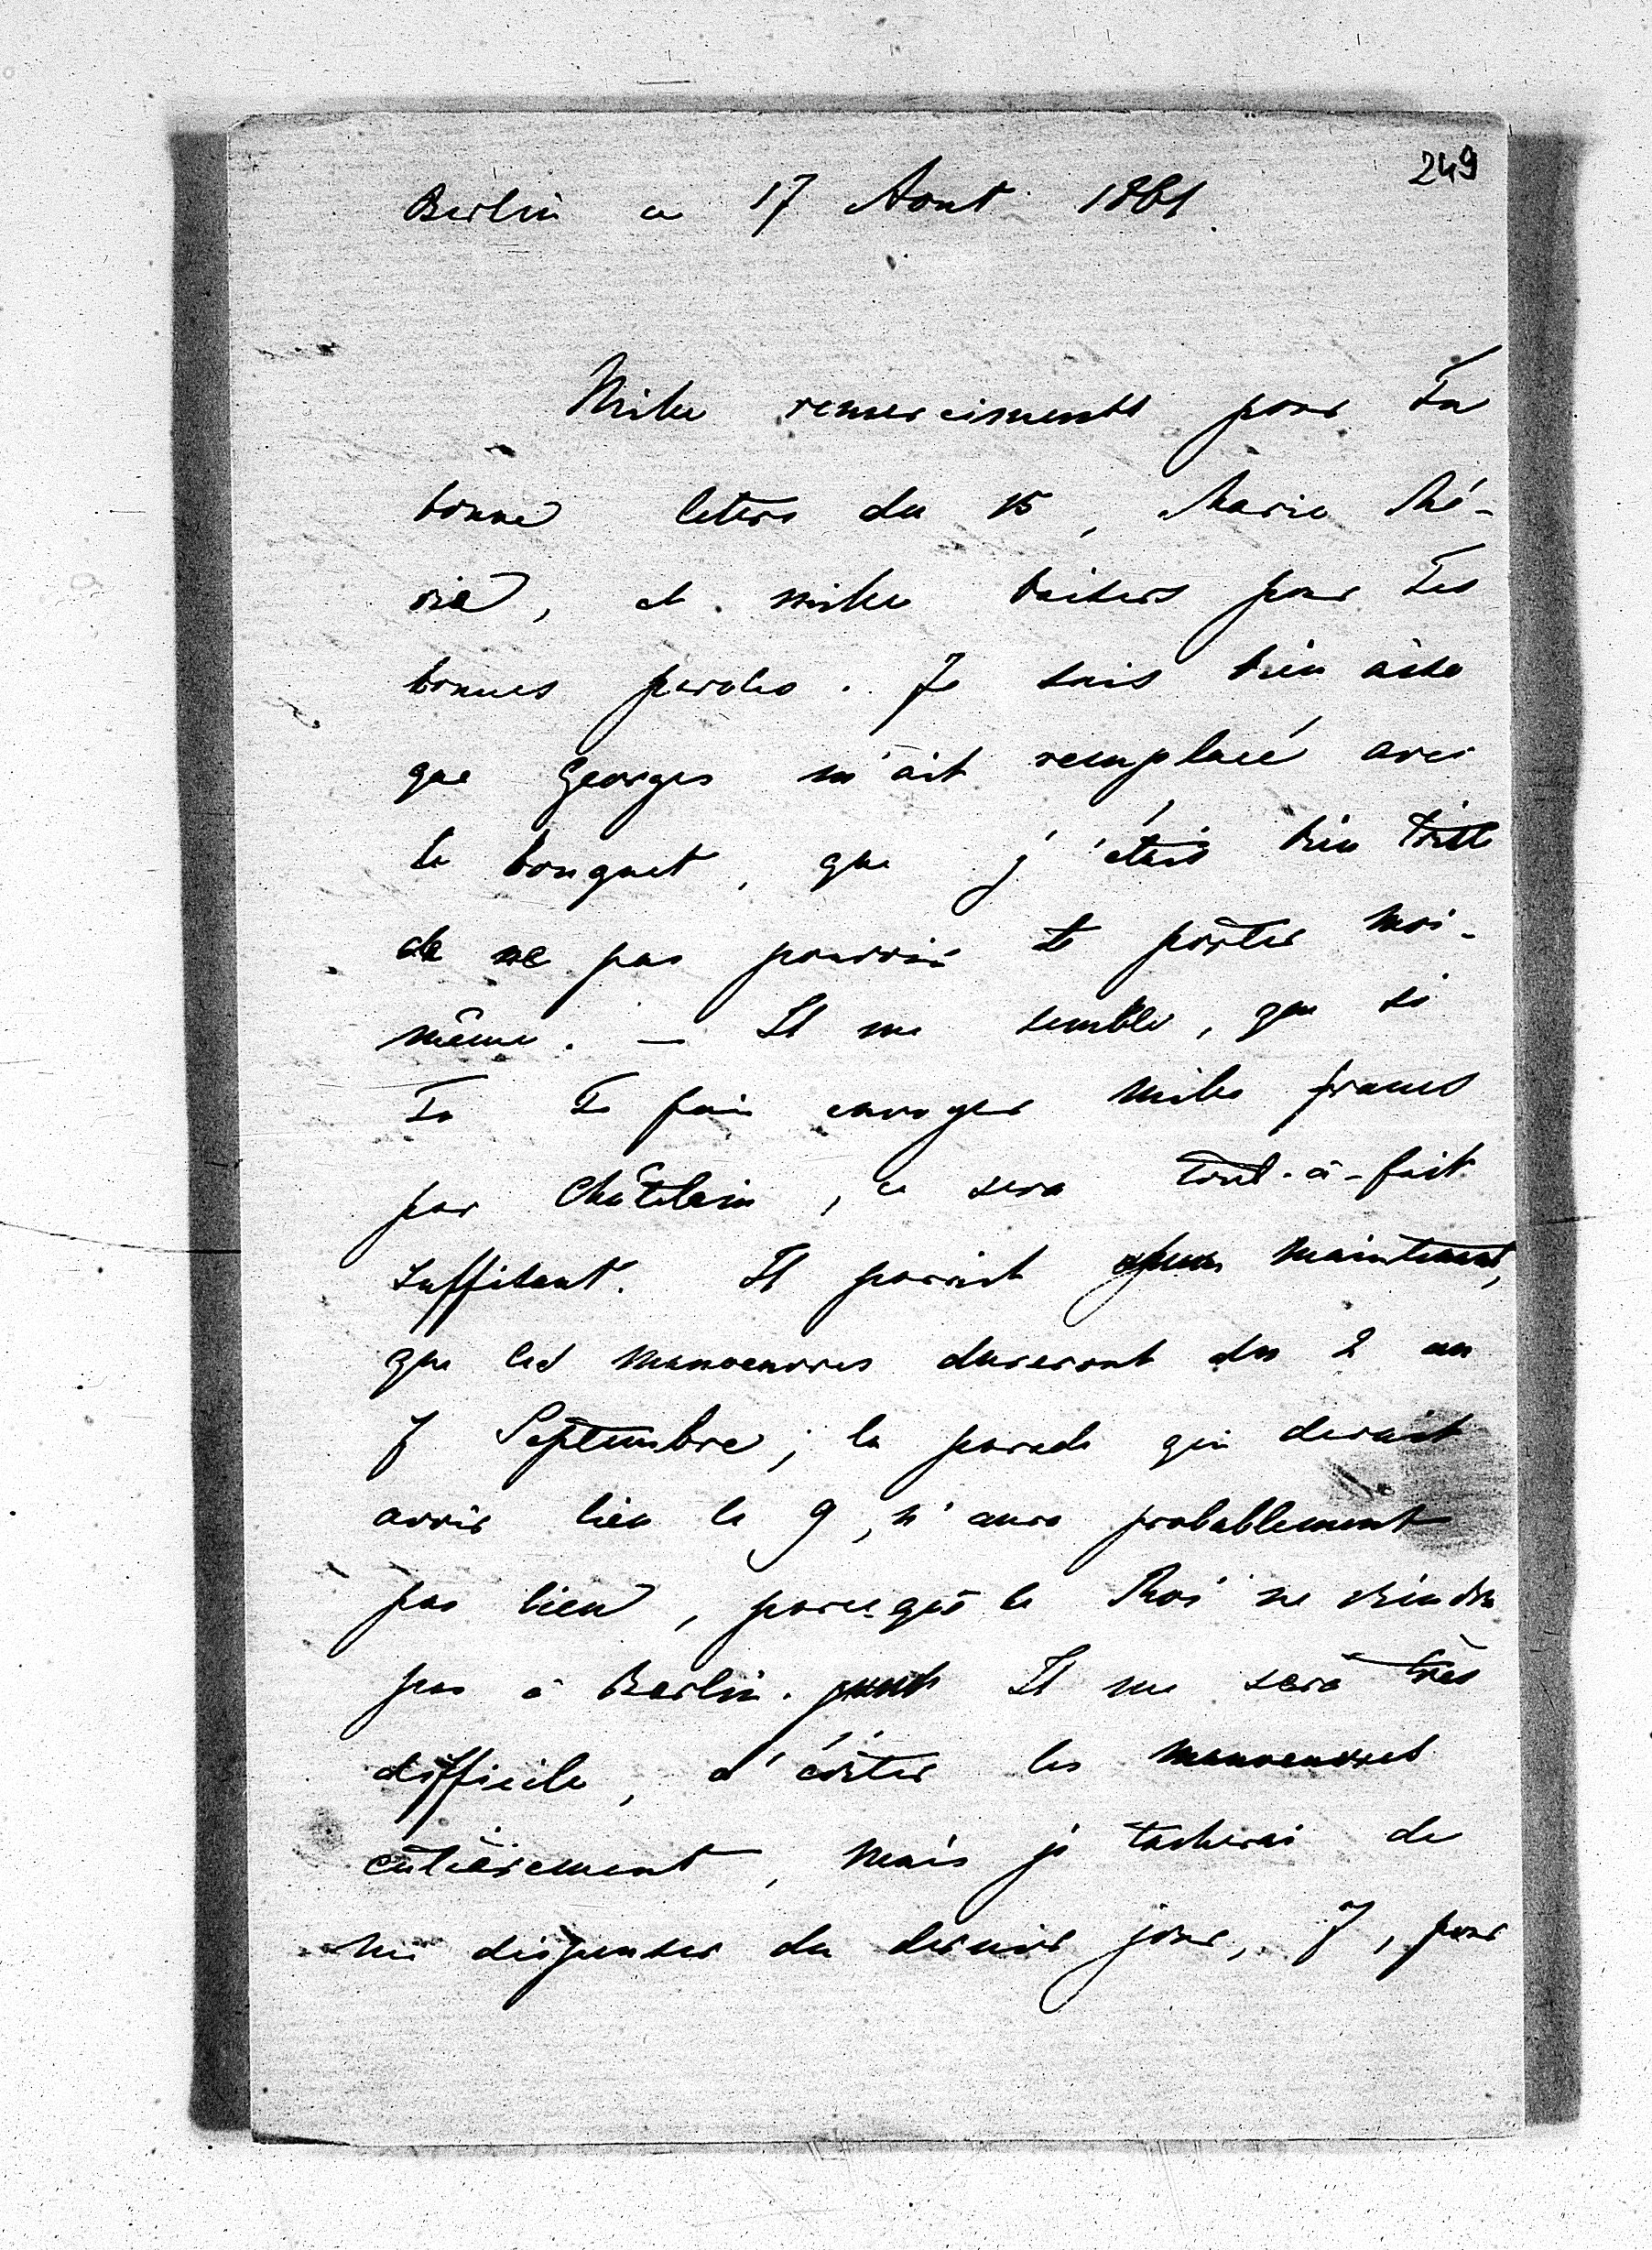 249
Berlin ce 17 Aout 1861.
Mille remerciments pour Ta
bonne lettre du 15, Marie ché-
rie, et mille baisers pour Tes
bonnes paroles. Je suis bien aise
que Georges m'ait remplacé avec
le bouquet, que j'étais bien triste
de ne pas pouvoir te porter moi-
même. — Il me semble, que si
Tu Te fais envoyer mille francs
par Châtelain, ce sera tout-à-fait
suffisant. Il parait maintenant,
que les manoeuvres dureront du 2 au
7 Septembre; la parade qui devait
avoir lieu le 9, n'aura probablement
pas lieu, parceque le Roi ne viendra
pas à Berlin. Il me sera très
difficile, d'éviter les manoeuvres
entièrement, mais je tacherai de
me dispenser du dernier jour, 7, pour